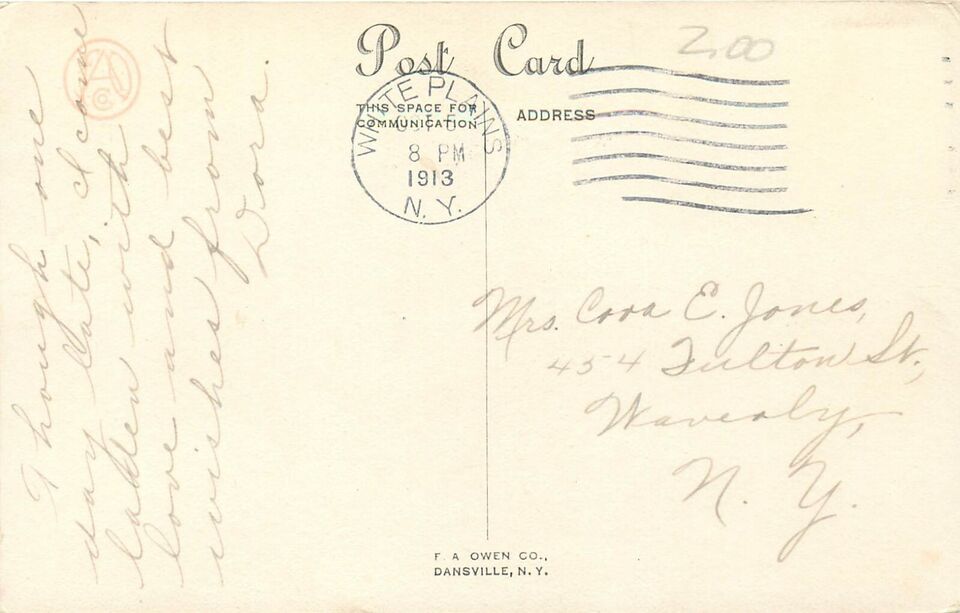 Post Card
2.00
THIS SPACE FOR
COMMUNICATION
ADDRESS
WHITE PLAINS
8 PM
1913
N. Y.
Though one
day late, I come
laden with
love and best
wishes from
Dora.
Mrs. Cora E. Jones,
454 Fulton St.,
Waverly,
N. Y.
F. A. OWEN CO.,
DANSVILLE, N. Y.